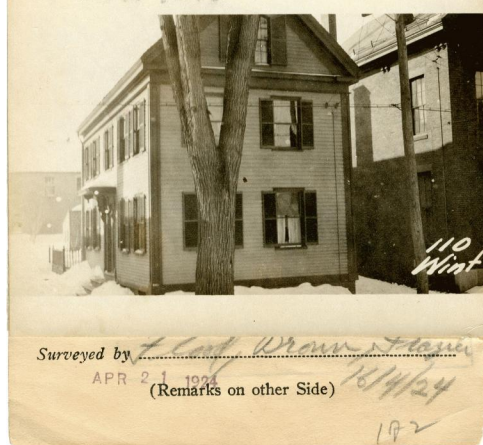 110
Wint
Surveyed by
APR 21 1924
16/4/24
(Remarks on other Side)
182